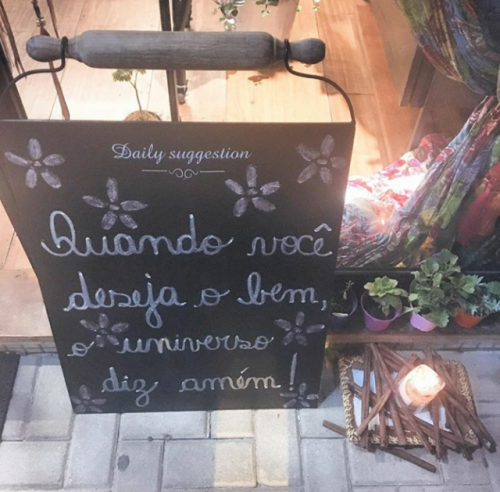 Daily suggestion
Quando você
deseja o bem,
o universo
diz amém!